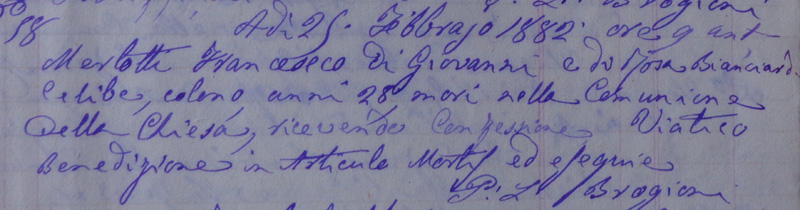 58 Adì 25. Febbrajo 1882. ore 9 ant
Merlotti Francesco di Giovanni e di Rosa Bianciardi
Celibe, colono, anni 28, morì nella Comunione
della Chiesa, ricevendo Confessione Viatico
Benedizione in Articulo Mortis ed esequie
P. L. Brogioni